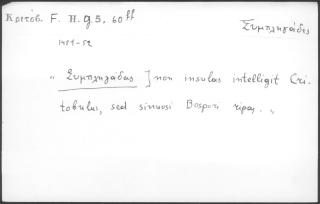 Κριτόβ. F. II. g 5. 60 ff
Συμπληγάδες
1451-52
„ Συμπληγάδας ] non insulas intelligit Cri-
tobulus, sed sinuosi Bospori ripas. „